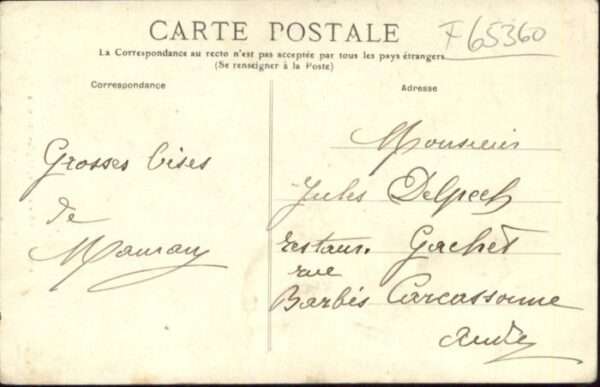 CARTE POSTALE
F65360
La Correspondance au recto n'est pas acceptée par tous les pays étrangers
(Se renseigner à la Poste)
Correspondance
Adresse
Grosses bises
de
Maman
Monsieur
Jules Delpech
restaur. Gachet
rue
Barbès Carcassonne
Aude